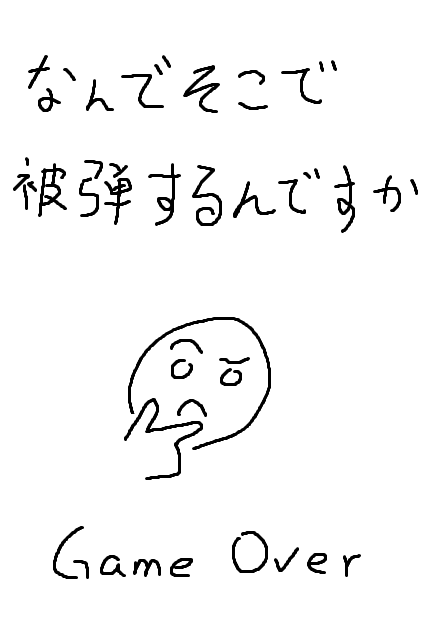 なんでそこで
被弾するんですか
Game Over